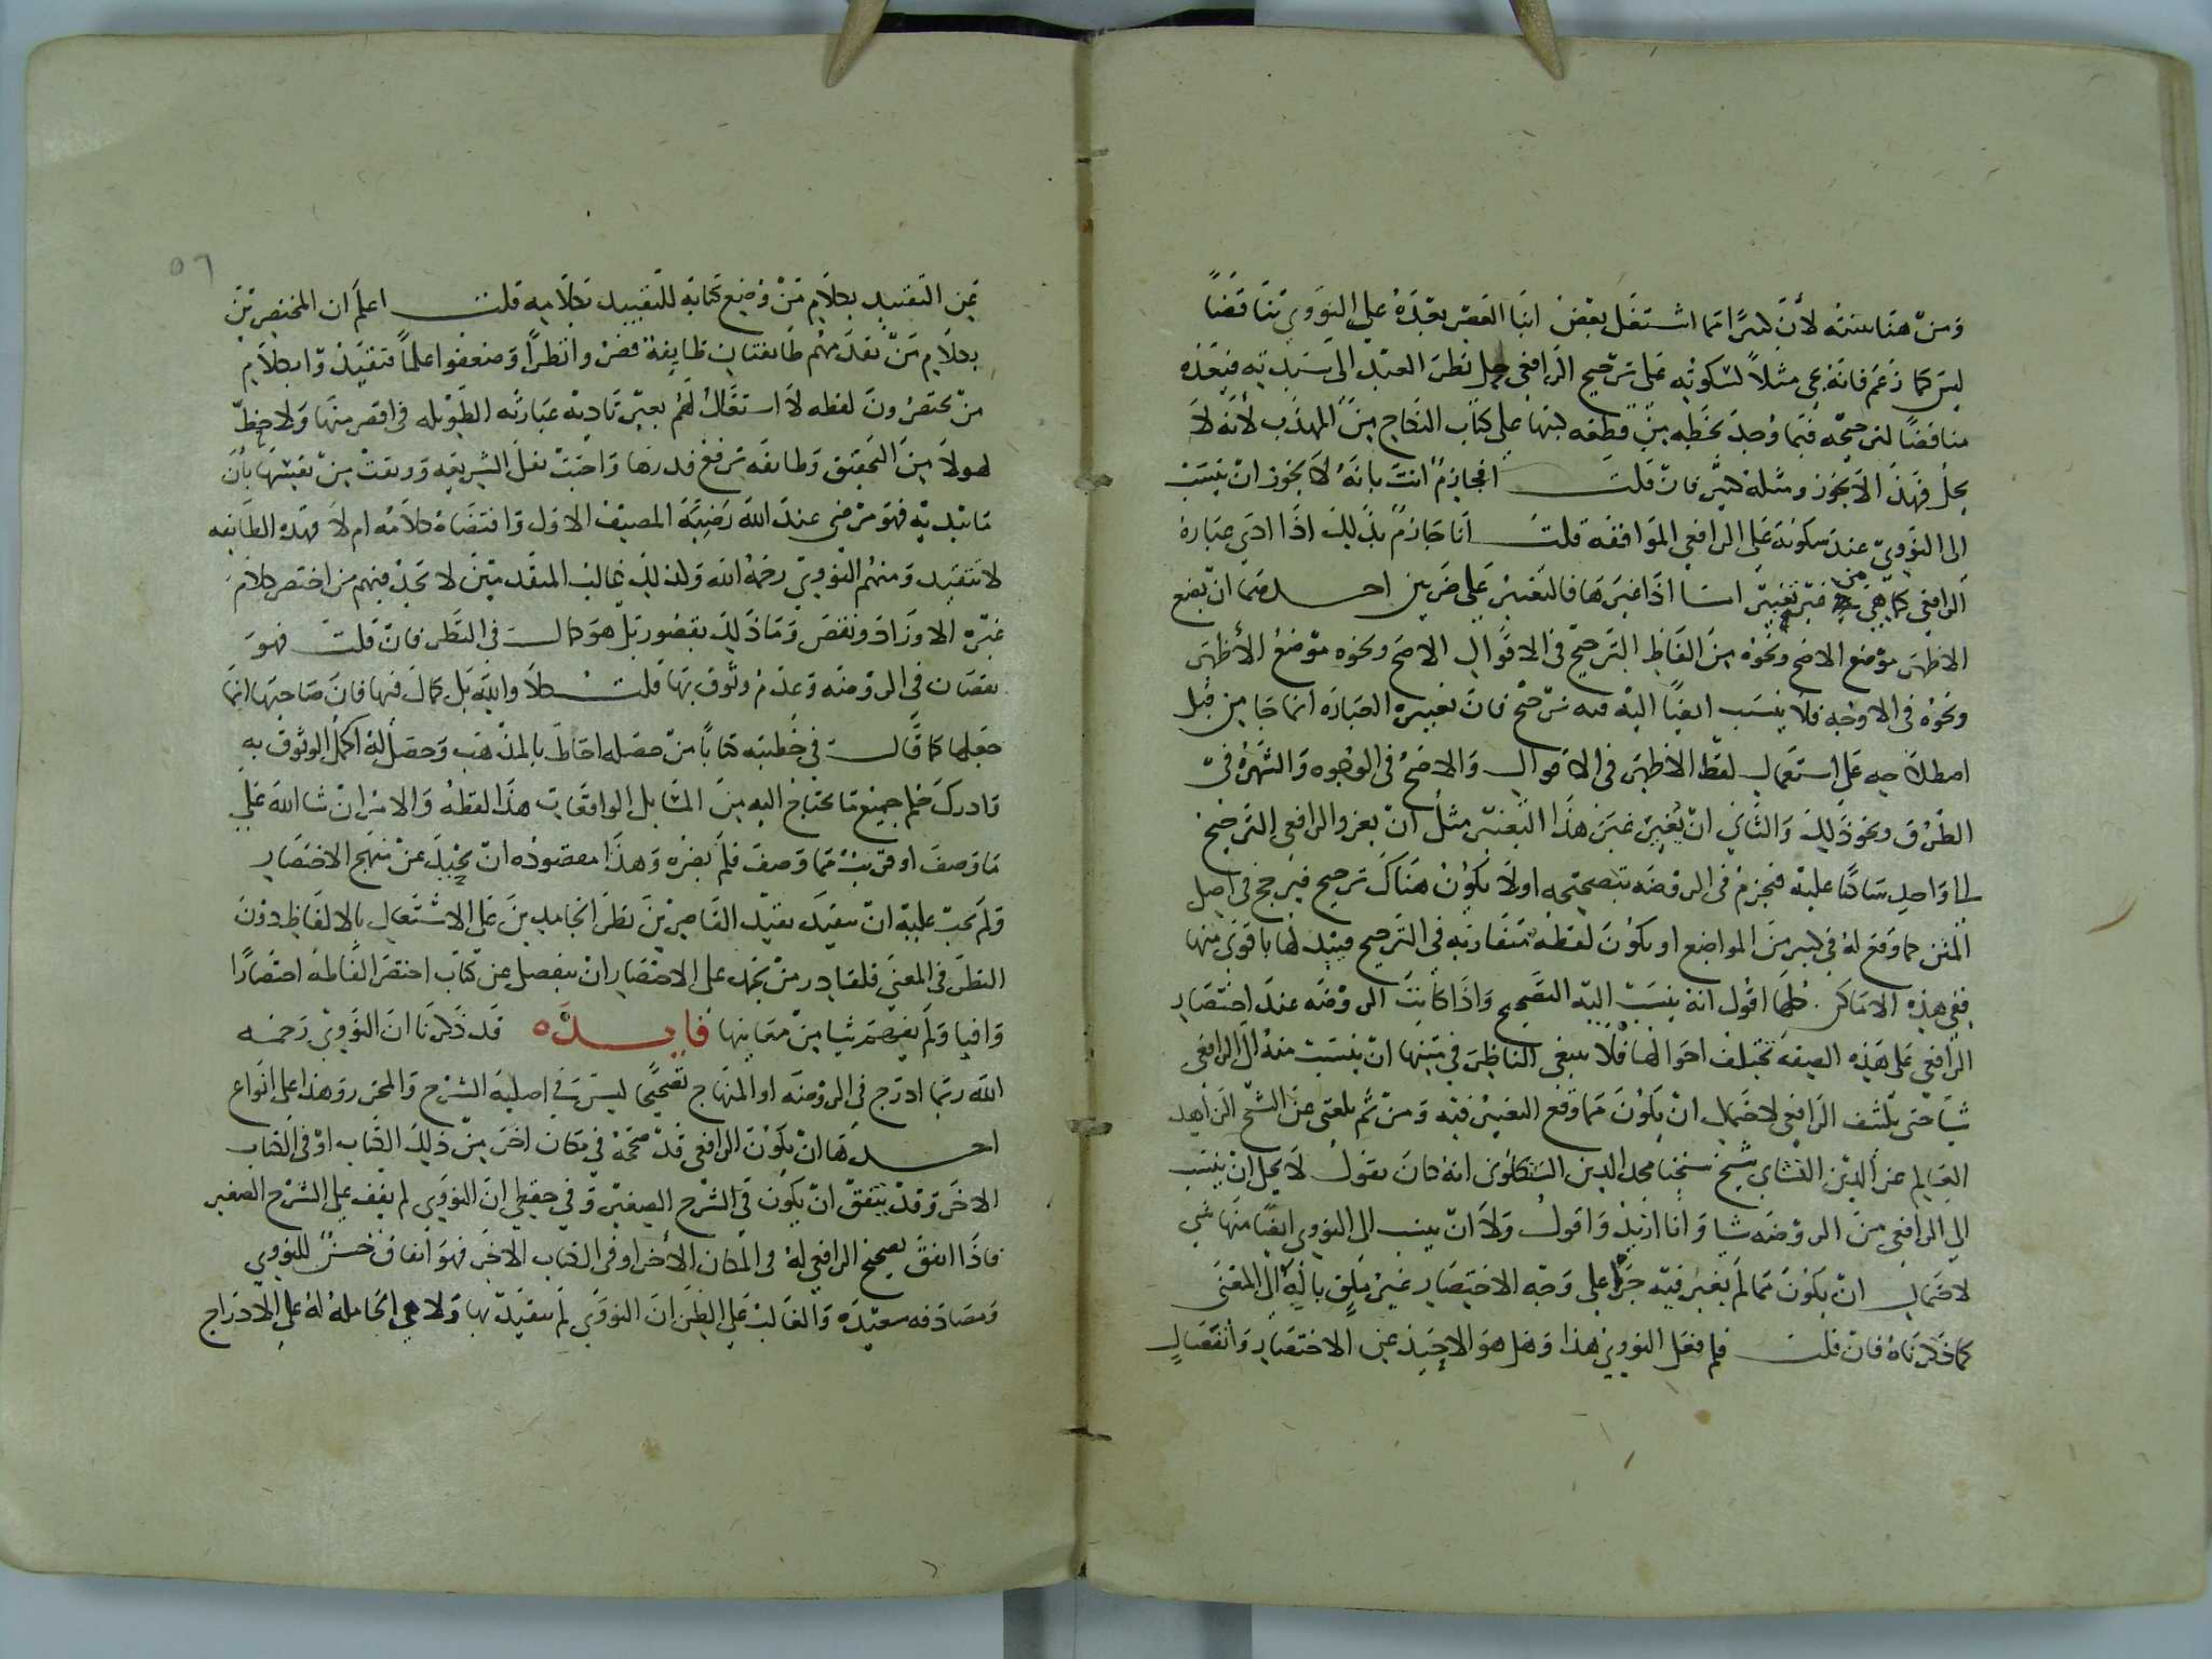 ومن هنا سننه لأن كثيرا مما اشتغل بعض ابنا العصر بعده على النووي تناقضا
ليس كما زعم فانه يجي مثلا لسكوته على ترجيح الرافعي نظر العبد الى سيديه فيعده
مناقضا لترجيحه فيما وجد بخطه من قطعه كتبها على كتاب النكاح من المهذب لأنه لا
يحل فهذا لا يجوز ومثله كثير فان قلت افجازم انت بانه لا يجوز ان ينسب
الى النووي عند سكوته على الرافعي الموافقه قلت انا جازم بذلك اذا ادى عبارة
الرافعي كما هي من غير تغيير اما اذا غيرها فالتغيير على ضربين احدهما ان يضع
الاظهر موضع الاصح ونحوه من الفاظ الترجيح في الاقوال الاصح ونحوه موضع الأظهر
ونحوه في الاوجه فلا ينسب ايضا اليه فيه ترجيح فان تغييره العباره انما جا من قبل
اصطلاحه على استعمال لفظ الاظهر في الاقوال والاصح في الوجوه والشهره في
الطرق ونحو ذلك والثاني ان يغير غير هذا التغيير مثل ان يعزو الرافعي الترجيح
الى واحد ساكتا عليه فيجزم في الروضه بتصحيحه اولا يكون هناك ترجيح فيرجح في اصل
المتن كما وقع له في كثير من المواضع او يكون لفظه متقاربه في الترجيح فيبدلها باقوى منها
ففي هذه الاماكن كلها اقول انه ينسب اليه التصحيح واذا كانت الروضه عند اختصار
الرافعي على هذه الصفه تختلف احوالها فلا ينبغي الناظر في متنها ان ينسب منه الى الرافعي
شيا حتى يكشف الرافعي لاحتمال ان يكون مما وقع التغيير فيه ومن ثم بلغني عن الشيخ الزاهد
العالم عز الدين النشاي شيخ شيخنا مجد الدين السنكلوني انه كان يقول لا يحل ان ينسب
الى الرافعي من الروضه شيا وانا ازيد واقول ولا ان ينسب الى النووي ايضا منها شي
لاحتمال ان يكون مما لم يغير فيه جريا على وجه الاختصار غير ملق باله الى المعنى
كما ذكرناه فان قلت فلم فعل النووي هذا وهل هو الا حيد عن الاختصار وانفصال
٥٦
عن التقييد بكلام من وضع كتابه للتقييد بكلامه قلت اعلم ان المختصرين
بكلام من تقدمهم طايفتان طايفة قصروا نظرا وضعفوا علما فتقيدوا بكلام
من يختصرون لفظه لا استقلال لهم بغير تاديه عباراته الطويله في اقصر منها ولا حظ
لهولا من التحقيق وطايفه ترفع قدرها واحبت نقل الشريعه ووثقت من نفسها بأن
ما تبديه فهو مرضي عند الله رضيه المصنف الاول واقتضاه كلامه ام لا فهذه الطايفه
لا تتقيد ومنهم النووي رحمه الله ولذلك غالب المتقدمين لا تجد فيهم من اختصر كلام
غيره الا وزاد ونقص وما ذلك بقصور بل هو كمال في النظر فان قلت فهو
نقصان في الروضه وعدم وثوق بها قلت كلا والله بل كمال فيها فان صاحبها انما
جعلها كما قال في خطبته كتابا من حصله احاط بالمذهب وحصل له اكمل الوثوق به
وادرك حكم جميع ما يحتاج اليه من المسايل الواقعات هذا لفظه والامر ان شا الله على
ما وصف او قريب مما وصف فلم يضره وهذا مقصوده ان يحيد عن منهج الاختصار
ولم يجب عليه ان يتقيد تقيد القاصرين نظرا الجامدين على الاشتغال بالالفاظ دون
النظر في المعنى فلقادر من نجد على الاختصار ان ينفصل عن كتاب اختصر الفاظه اختصارا
وافيا ولم يغير شيا من معانيها فايدة قد ذكرنا ان النووي رحمه
الله ربما ادرج في الروضه او المنهاج تصحيحا ليس في اصليه الشرح والمحرر وهذا على انواع
احدها ان يكون الرافعي قد صححه في مكان اخر من ذلك الكتاب او في الكتاب
الاخر وقد يتفق ان يكون في الشرح الصغير وفي حفظي ان النووي لم يقف على الشرح الصغير
فاذا اتفق تصحيح الرافعي له في المكان الأخر او في الكتاب الاخر فهو اتفاق حسن للنووي
ومصادفه سعيده والغالب على الظن ان النووي لم يتقيد بها ولا هي الحاملة له على الادراج